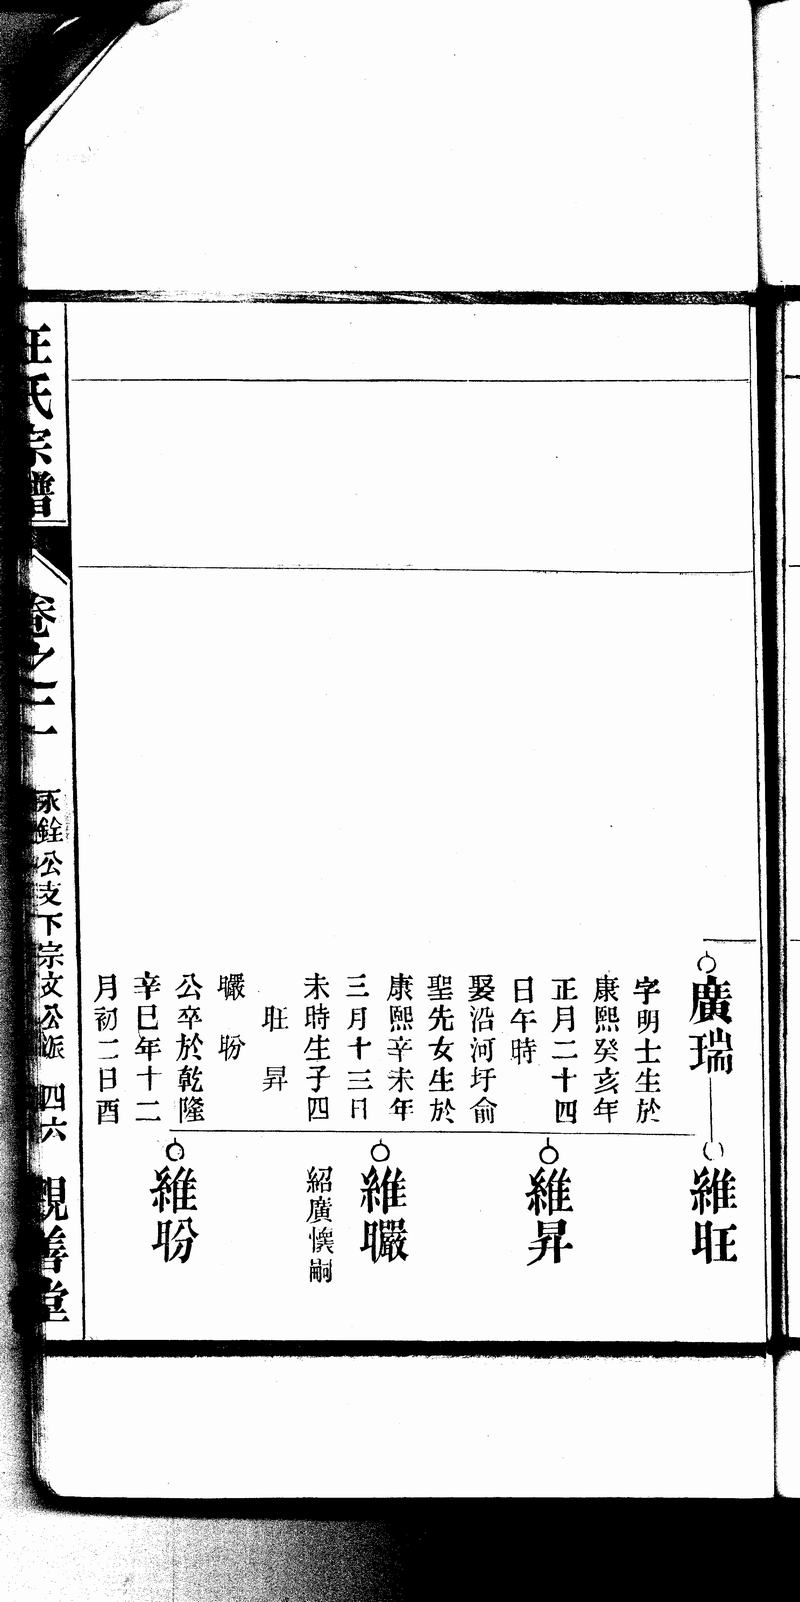 廣瑞
字明士生於
康熙癸亥年
正月二十四
日午時
娶沿河圩俞
聖先女生於
康熙辛未年
三月十三日
未時生子四
旺 昇
曮 昐
公卒於乾隆
辛巳年十二
月初二日酉
維旺
維昇
維曮
紹廣懊嗣
維昐
汪氏宗譜
卷之二
永銓公支下宗文公派 四六
親善堂